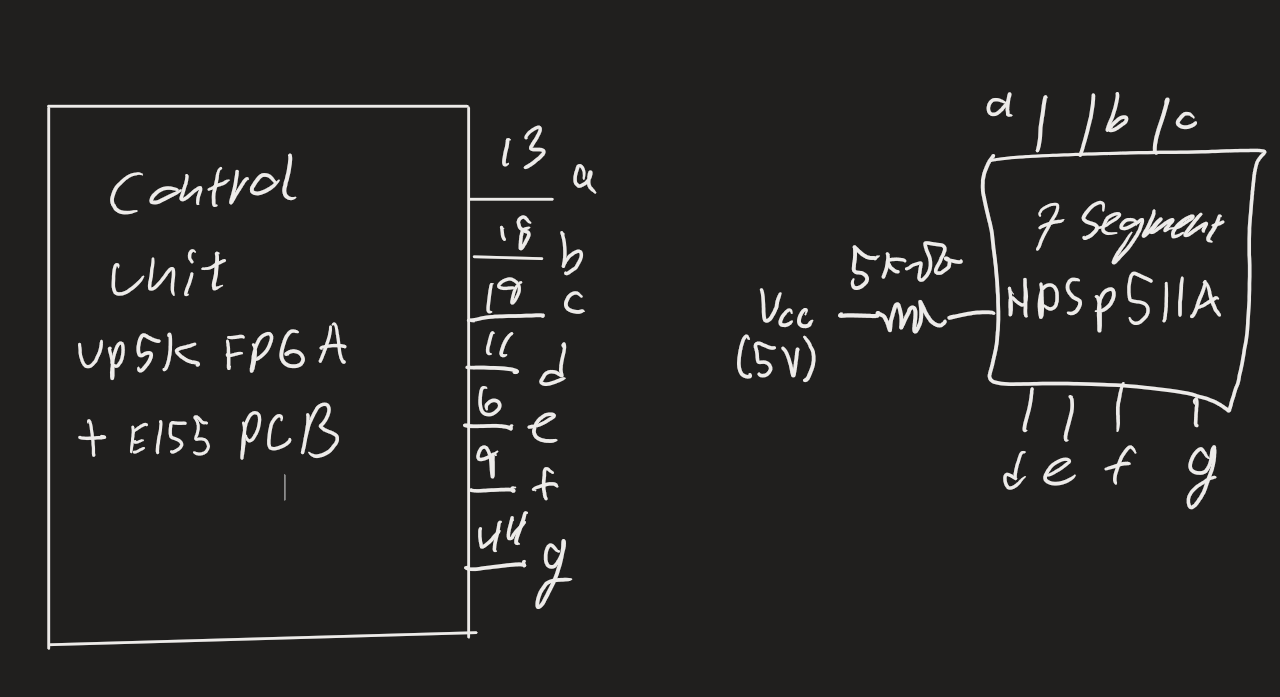 Control
Unit
Up5K FPGA
+ E155 PCB
13 a
18 b
19 c
11 d
6 e
9 f
44 g
Vcc
(5V)
5K
a b c
7 Segment
HDSP511A
d e f g